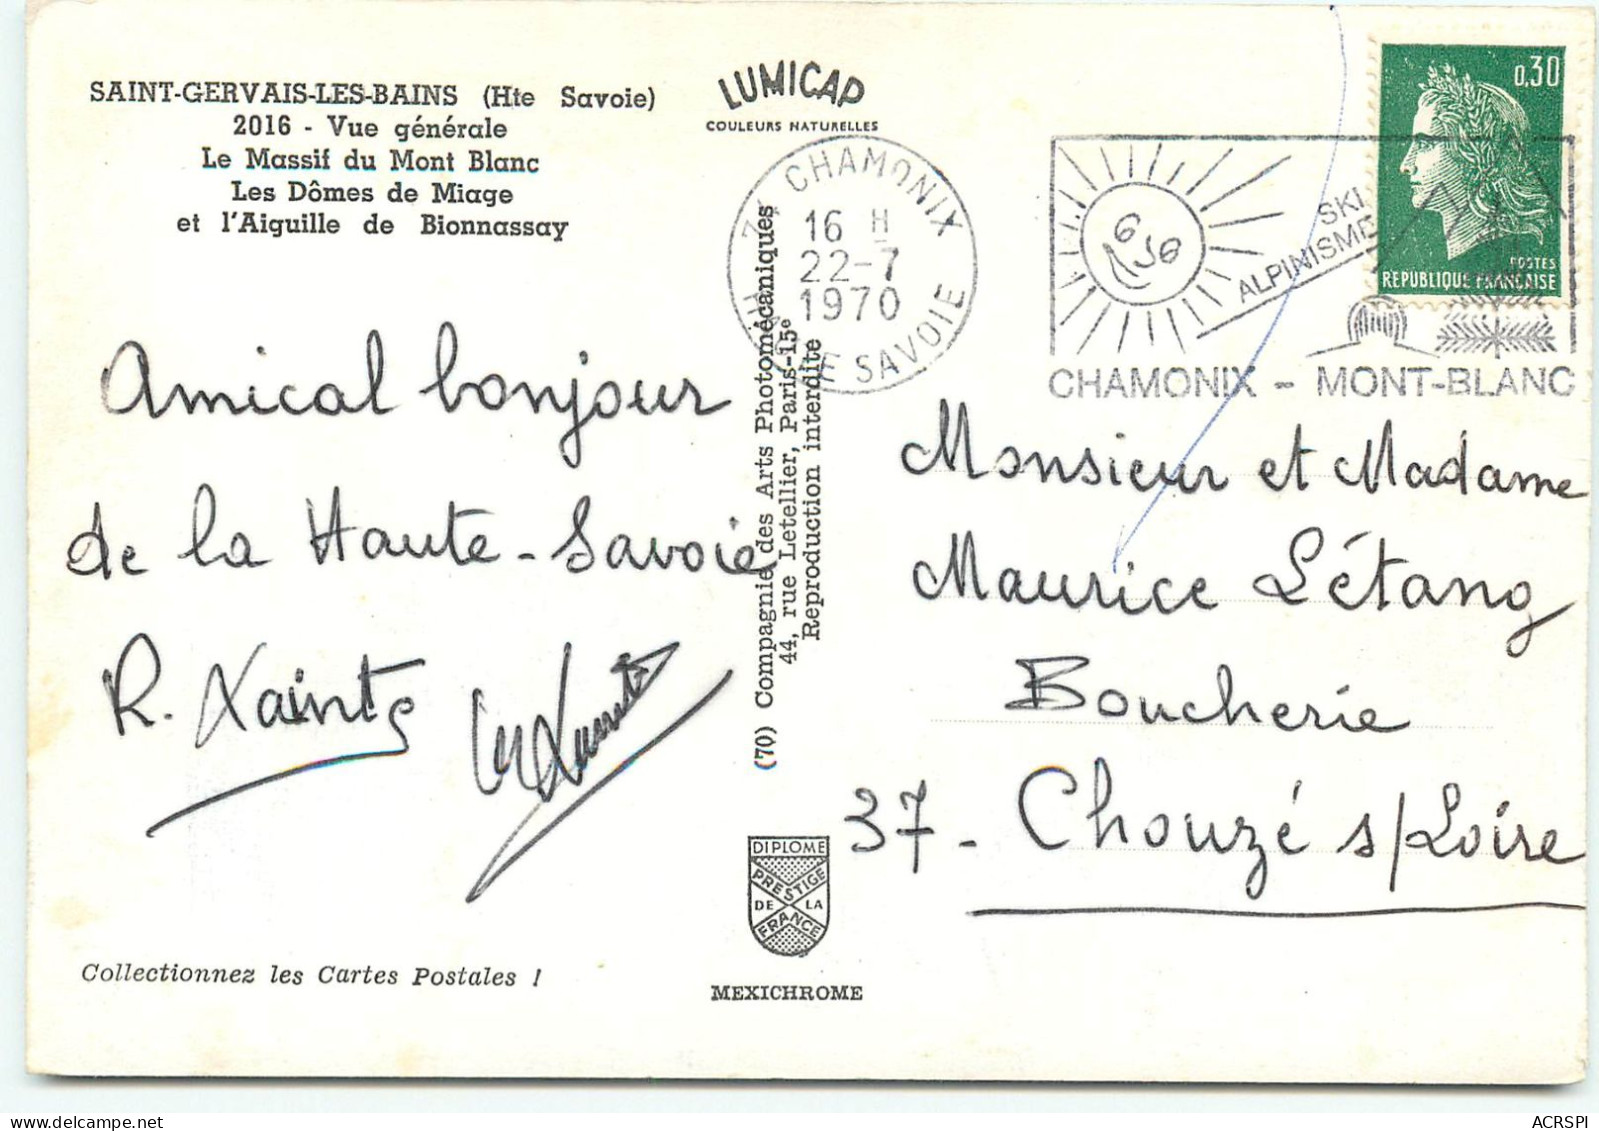 SAINT-GERVAIS-LES-BAINS (Hte Savoie)
2016 - Vue générale
Le Massif du Mont Blanc
Les Dômes de Miage
et l'Aiguille de Bionnassay
LUMICAP
COULEURS NATURELLES
CHAMONIX
16 H
22-7
1970
HAUTE SAVOIE
SKI
ALPINISME
CHAMONIX - MONT-BLANC
0,30
POSTES
REPUBLIQUE FRANÇAISE
Amical bonjour
de la Haute-Savoie
R. Xainte
(70) Compagnie des Arts Photomécaniques
44, rue Letellier, Paris-15e
Reproduction interdite
Monsieur et Madame
Maurice Létang
Boucherie
37 - Chouzé s/Loire
DIPLOME
PRESTIGE
DE LA
FRANCE
MEXICHROME
Collectionnez les Cartes Postales !
ACRSPI